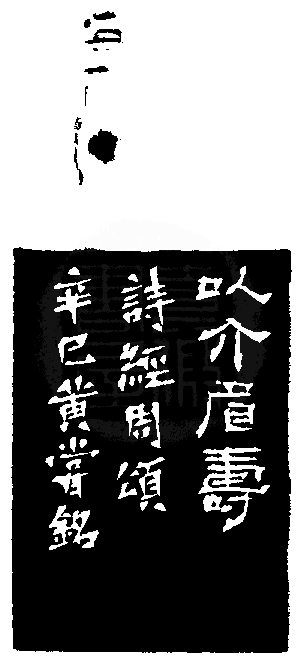 以介眉壽
詩經周頌
辛巳黃嘗銘